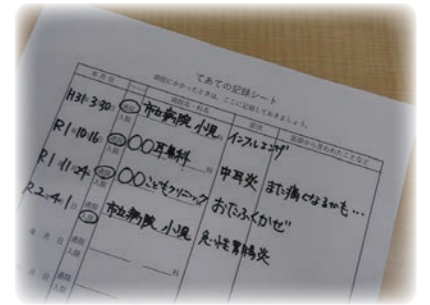 てあての記録シート
病院にかかったときは、ここに記録しておきましょう。
年月日 病院名・科名 症状 医師から言われたことなど
H31年3月30日 通院 入院 市立病院 小児科 インフルエンザ
R1年10月16日 通院 入院 〇〇耳鼻科 中耳炎 また痛くなるかも…
R1年11月24日 通院 入院 〇〇こどもクリニック おたふくかぜ
R2年4月1日 通院 入院 市立病院 小児 急性胃腸炎
年 月 日 通院 入院 科
年 月 日 通院 入院